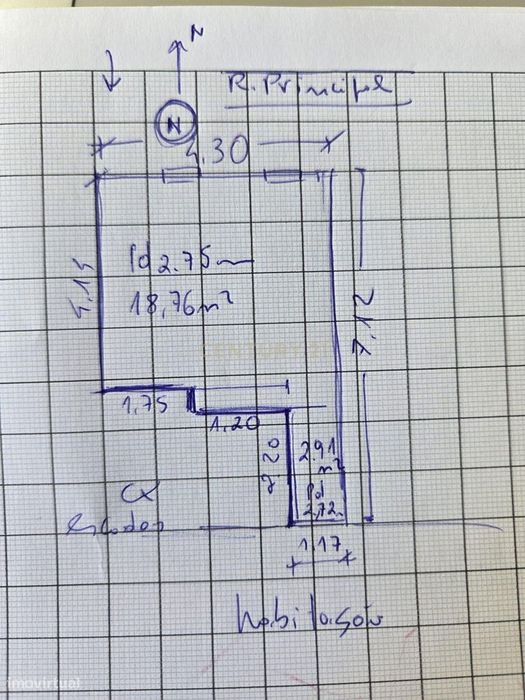 N
R. Principal
N
4.30
4.14
Pd 2.75m
18,76m²
7.12
CENTURY 21
1,75
1.20
2.20
2.91
m²
Pd
2,72m
CX
escadas
1,17
habitação
imovirtual